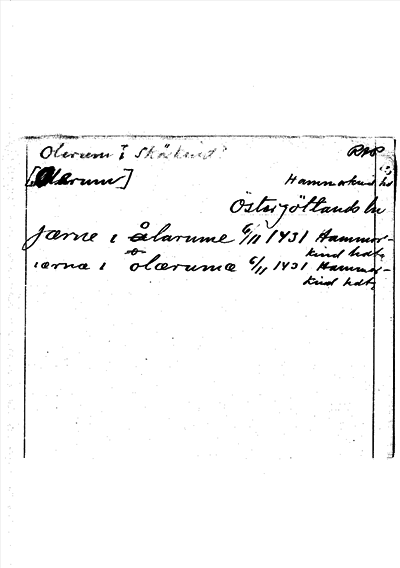 Olerum i Skärkind?
RAP
[Olerum]
Hammarkind hd
Östergötlands län
Jærne i Ålarume 6/11 1431 Hammar-
kind hdt,
iærnæ i olærumæ 6/11 1431 Hammar-
kind hdt,